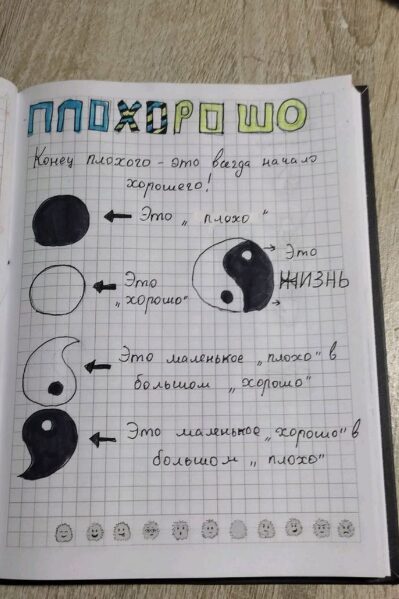 ПЛОХОРОШО
Конец плохого - это всегда начало
хорошего!
Это „плохо"
Это
„хорошо"
Это
ЖИЗНЬ
Это маленькое „плохо" в
большом „хорошо"
Это маленькое „хорошо" в
большом „плохо"